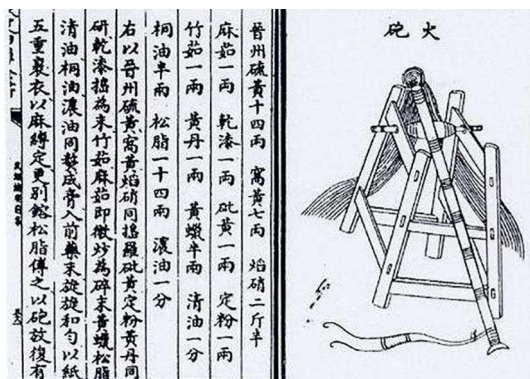 火砲
晉州硫黃十四兩 窩黃七兩 焰硝二斤半
麻茹一兩 乾漆一兩 砒黃一兩 定粉一兩
竹茹一兩 黃丹一兩 黃蠟半兩 清油一分
桐油半兩 松脂一十四兩 濃油一分
右以晉州硫黃窩黃焰硝同搗羅砒黃定粉黃丹同
研乾漆搗為末竹茹麻茹即微炒為碎末黃蠟松脂
清油桐油濃油同熬成膏入前藥末旋旋和勻以紙
五重裹衣以麻縛定更別鎔松脂傅之以砲放復有